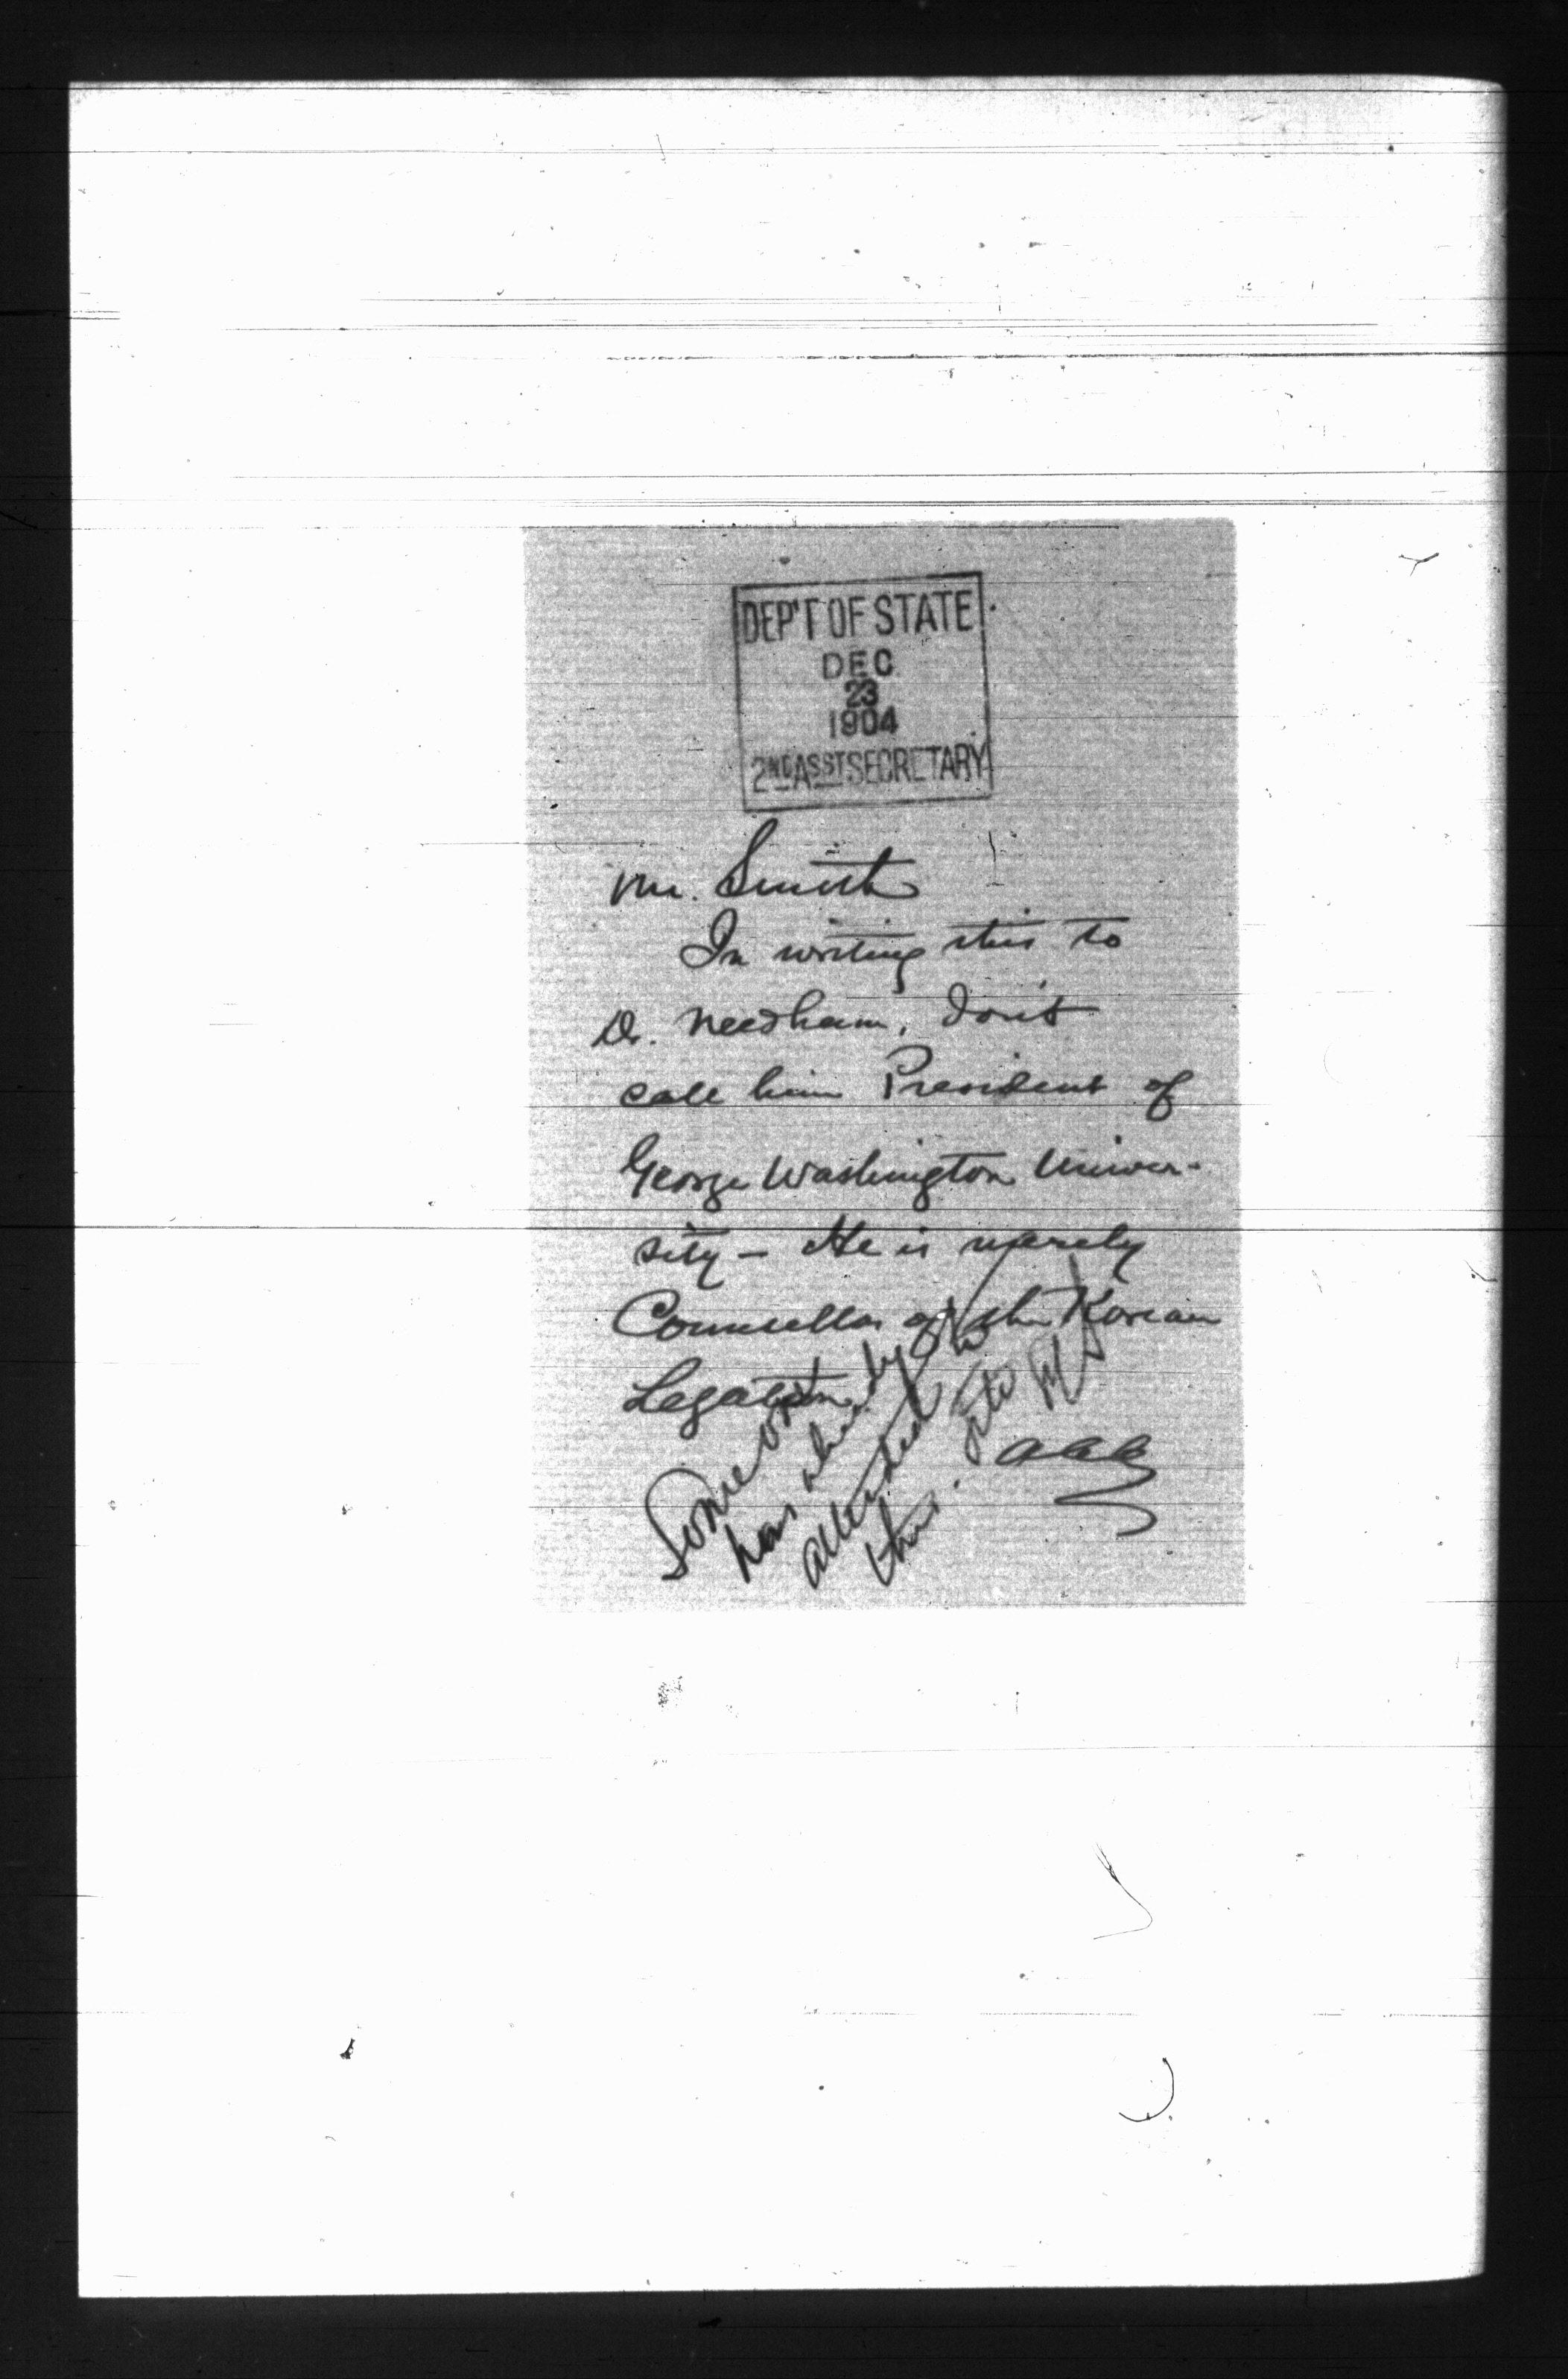 DEP'T OF STATE
DEC
23
1904
2ND ASST SECRETARY
Mr. Smith
In writing this to
Dr. Needham, don't
call him President of
George Washington Univer-
sity — He is merely
Counsellor of the Korean
Legation
AAA
Some one
has already
attended to
this.